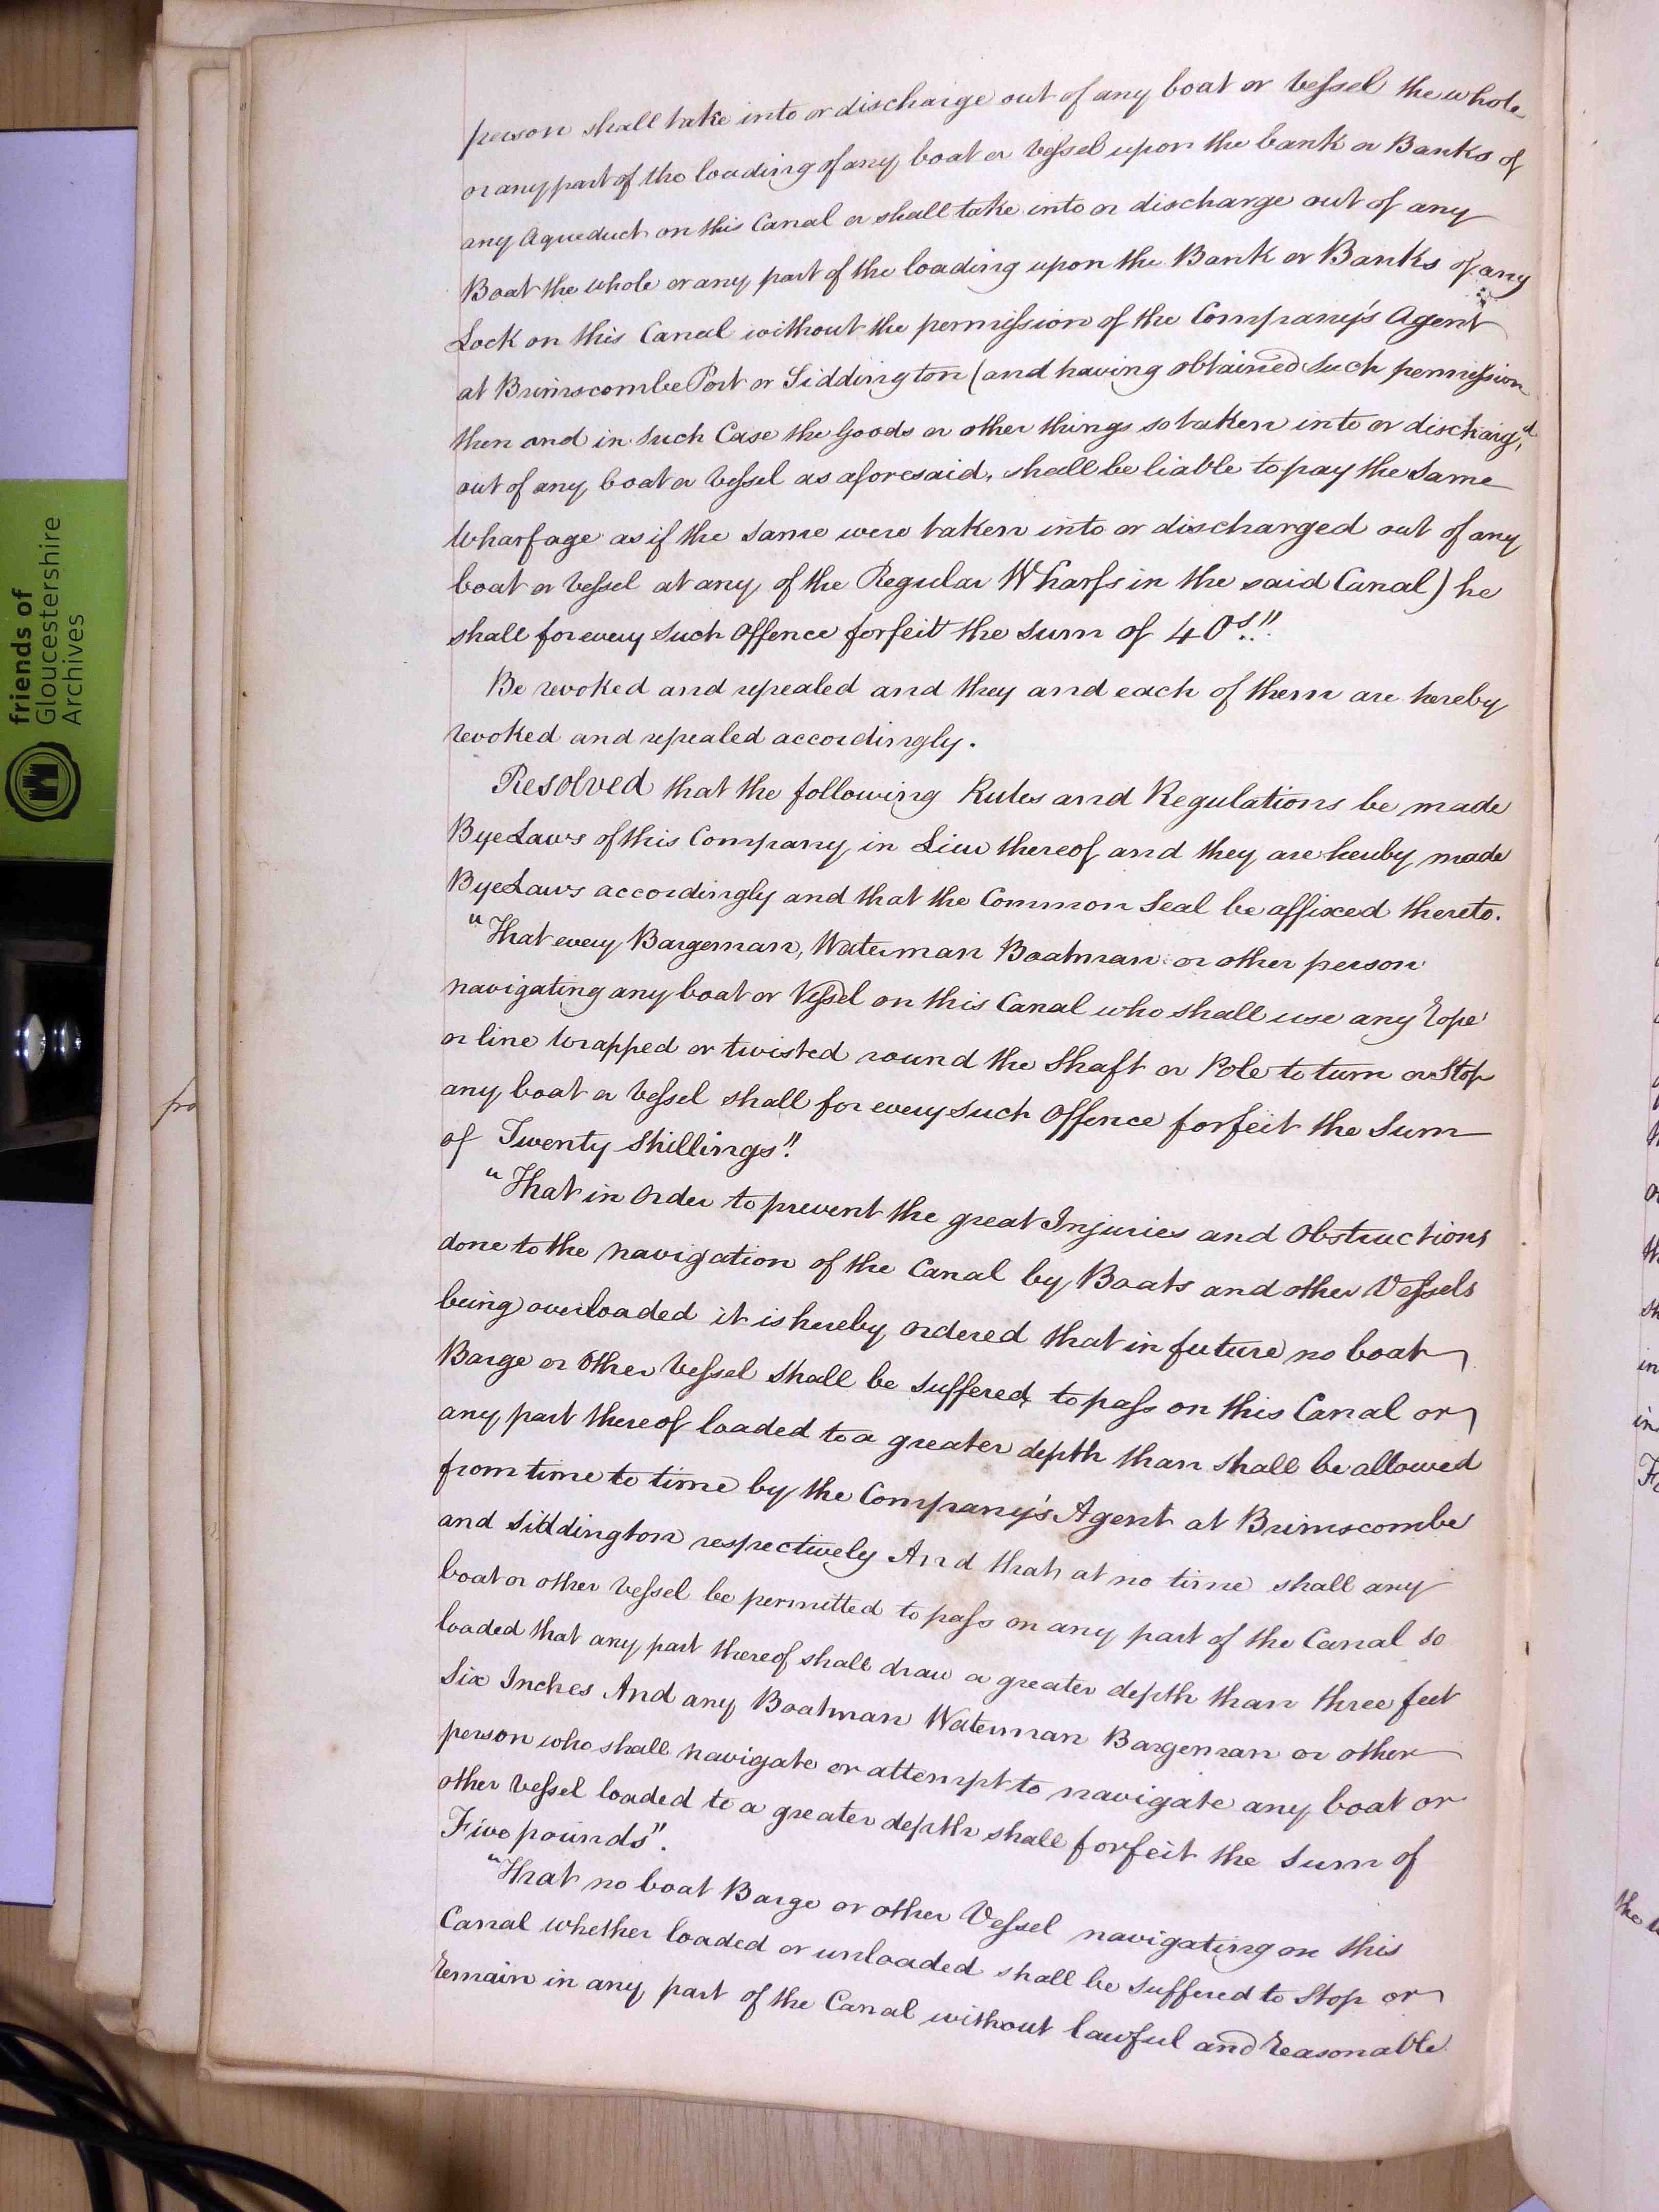 person shall take into or discharge out of any boat or Vessel the whole
or any part of the loading of any boat or Vessel upon the bank or Banks of
any Aqueduct on this Canal or shall take into or discharge out of any
Boat the whole or any part of the loading upon the Bank or Banks of any
Lock on this Canal without the permission of the Company's Agent
at Brimscombe Port or Siddington (and having obtained such permission
then and in such Case the Goods or other things so taken into or discharg'd
out of any boat or Vessel as aforesaid, shall be liable to pay the Same
Wharfage as if the Same were taken into or discharged out of any
boat or Vessel at any of the Regular Wharfs in the said Canal) he
shall for every such Offence forfeit the Sum of 40s."
Be revoked and repealed and they and each of them are hereby
revoked and repealed accordingly.
Resolved that the following Rules and Regulations be made
Bye Laws of this Company in Lieu thereof and they are hereby made
Bye Laws accordingly and that the Common Seal be affixed thereto.
"That every Bargeman, Waterman Boatman or other person
navigating any boat or Vessel on this Canal who shall use any Rope
or line wrapped or twisted round the Shaft or Pole to turn or Stop
any boat or Vessel shall for every such Offence forfeit the Sum
of Twenty Shillings"
"That in Order to prevent the great Injuries and Obstructions
done to the navigation of the Canal by Boats and other Vessels
being overloaded it is hereby ordered that in future no boat
Barge or Other Vessel Shall be suffered to pass on this Canal or
any part thereof loaded to a greater depth than Shall be allowed
from time to time by the Company's Agent at Brimscombe
and Siddington respectively And that at no time shall any
boat or other Vessel be permitted to pass on any part of the Canal so
loaded that any part thereof shall draw a greater depth than three feet
Six Inches And any Boatman Waterman Bargeman or other
person who shall navigate or attempt to navigate any boat or
other Vessel loaded to a greater depth shall forfeit the Sum of
Five pounds".
"That no boat Barge or other Vessel navigating on this
Canal whether loaded or unloaded shall be suffered to Stop or
Remain in any part of the Canal without lawful and Reasonable
friends of
Gloucestershire
Archives